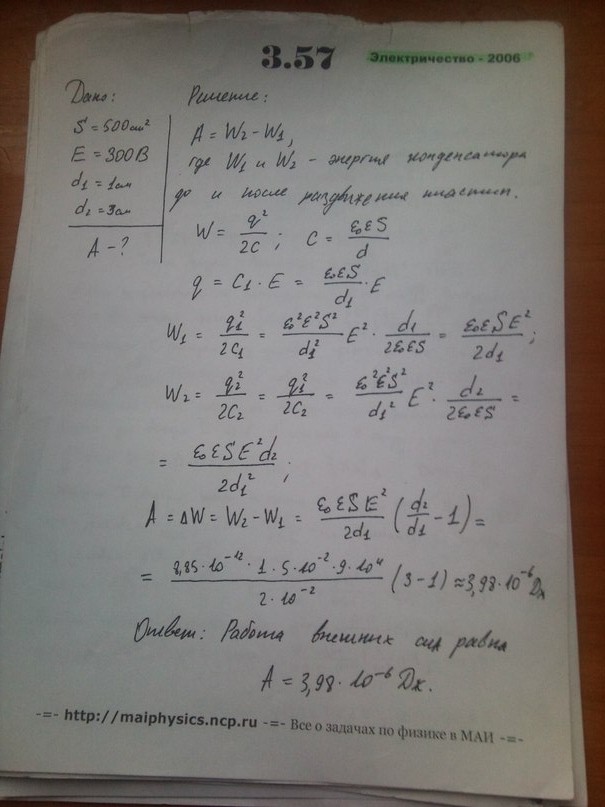 3.57
Электричество - 2006
Дано:
S = 500 см²
E = 300 В
d₁ = 1 см
d₂ = 3 см
A - ?
Решение:
A = W₂ - W₁,
где W₁ и W₂ - энергия конденсатора
до и после раздвижения пластин.
W = q²/2C ; C = ε₀εS/d
q = C₁ · E = ε₀εS/d₁ · E
W₁ = q₁²/2C₁ = ε₀²ε²S²/d₁² E² · d₁/2ε₀εS = ε₀εSE²/2d₁ ;
W₂ = q₂²/2C₂ = q₁²/2C₂ = ε₀²ε²S²/d₁² E² · d₂/2ε₀εS =
= ε₀εSE²d₂/2d₁² ;
A = ΔW = W₂ - W₁ = ε₀εSE²/2d₁ (d₂/d₁ - 1) =
= 8,85·10⁻¹² · 1 · 5·10⁻² · 9·10⁴/2·10⁻² (3-1) ≈ 3,98·10⁻⁶ Дж
Ответ: Работа внешних сил равна
A = 3,98 · 10⁻⁶ Дж.
-=- http://maiphysics.ncp.ru -=- Все о задачах по физике в МАИ -=-